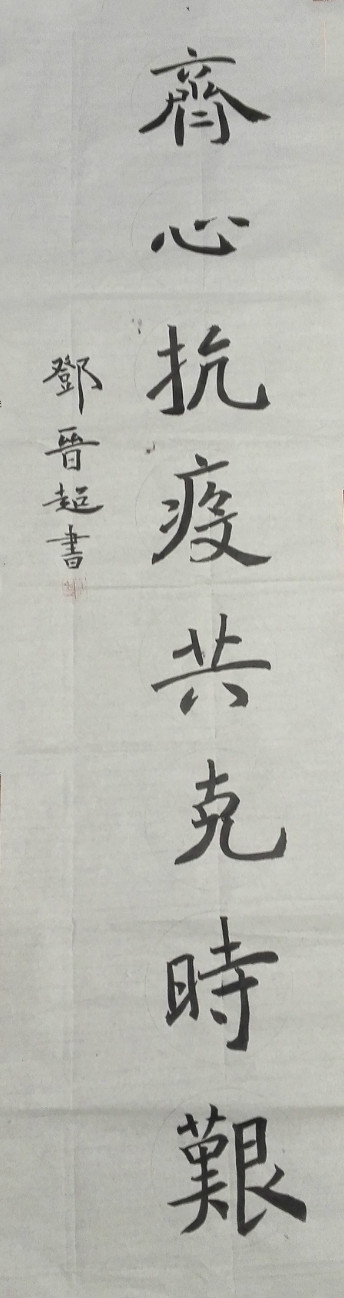 齊心抗疫共克時艱
鄧晉超書